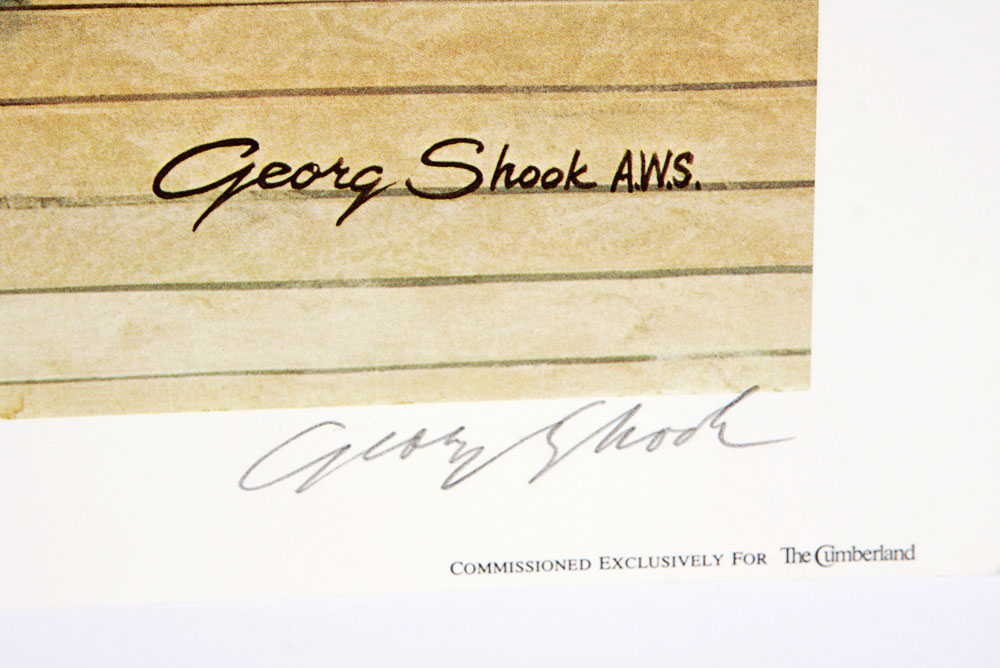 Georg Shook A.W.S.
Georg Shook
COMMISSIONED EXCLUSIVELY FOR The Cumberland